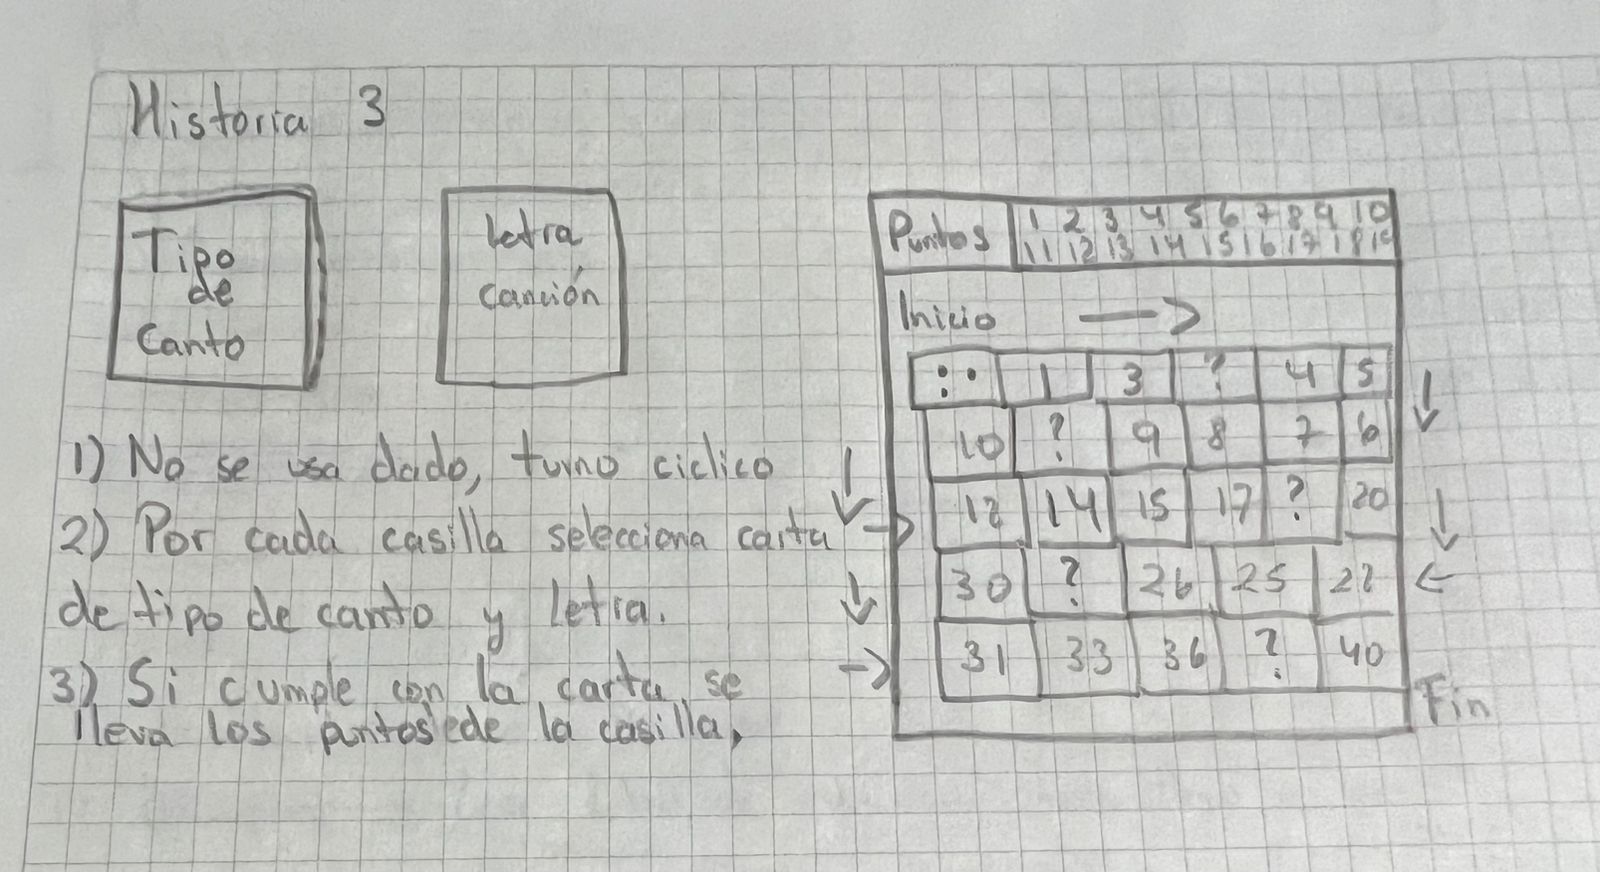 Historia 3
Tipo
de
Canto
letra
canción
1) No se usa dado, turno ciclico
2) Por cada casilla selecciona carta
de tipo de canto y letra.
3) Si cumple con la carta se
lleva los puntos de la casilla,
Puntos 1 2 3 4 5 6 7 8 9 10
11 12 13 14 15 16 17 18 19
Inicio →
1 3 ? 4 5
10 ? 9 8 7 6
12 14 15 17 ? 20
30 ? 26 25 22
31 33 36 ? 40
Fin